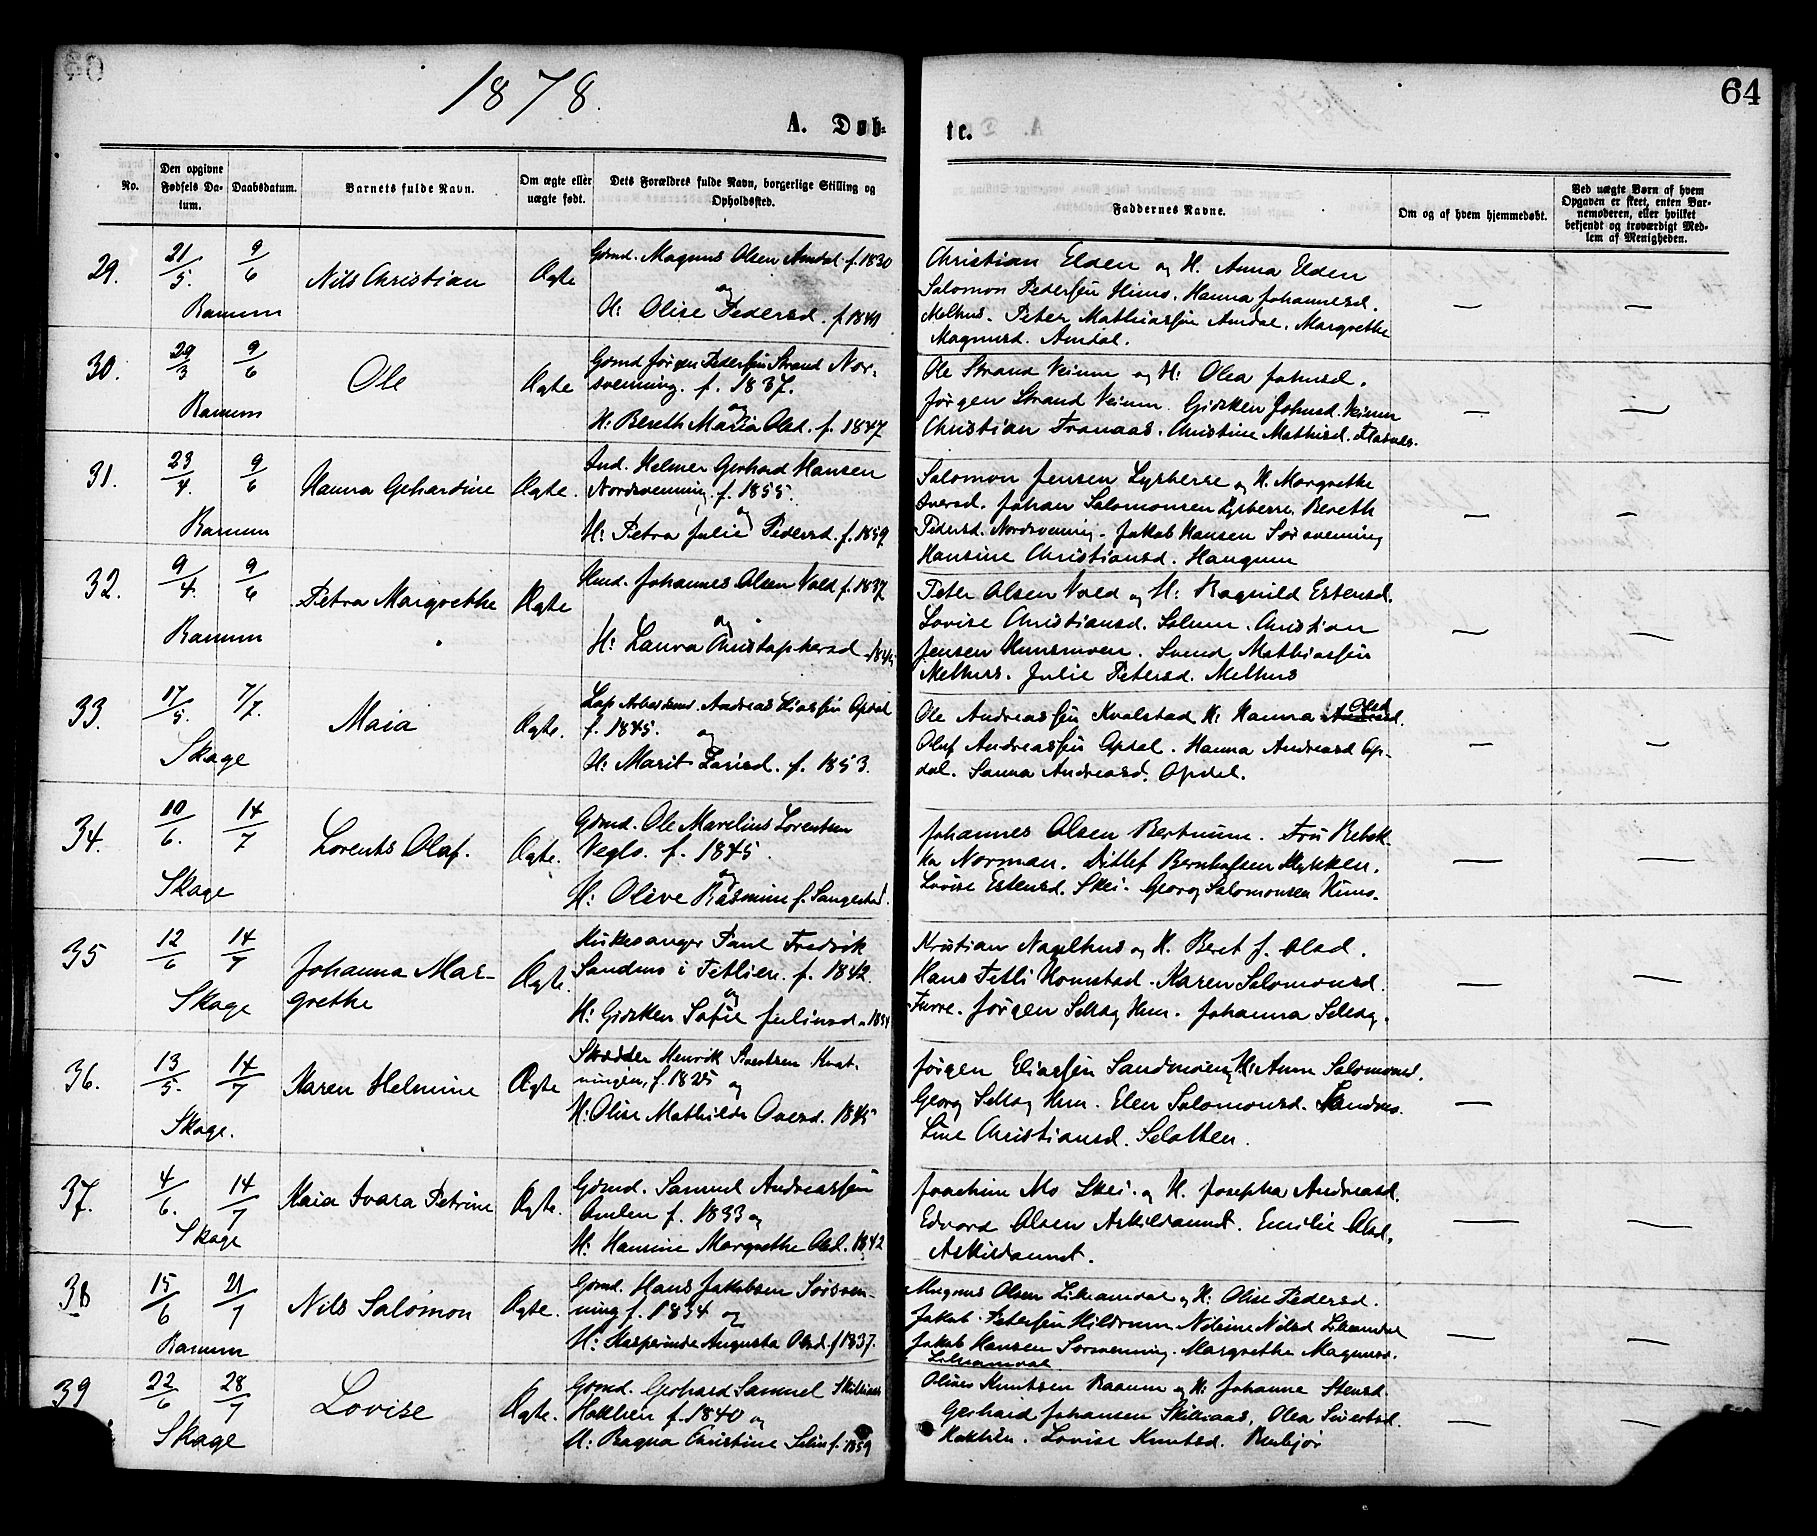 1878.
64
A. Døb-
te.
No.
Den opgivne Fødsels Da-tum.
Daabsdatum.
Barnets fulde Navn.
Om ægte eller uægte født.
Dets Forældres fulde Navn, borgerlige Stilling og Opholdssted.
Faddernes Navne.
Om og af hvem hjemmedøbt.
Ved uægte Børn af hvem Opgaven er skeet, enten Bar-nemoderen, eller hvilket bekjendt og troværdigt Med-lem af Menigheden.
29. 21/5. 9/6 Nils Christian Ægte
Ranum
Gmd. Magnus Olsen Amdal f. 1830
og
H: Olise Pedersd. f. 1841
Christian Elden og H. Anna Elden
Salomon Pedersen Himo. Hanna Johannesd.
Melhus. Peter Mathiassen Amdal. Margrethe
Magnusd. Amdal.
— —
30. 29/3 9/6 Ole Ægte
Ranum
Gmd Jørgen Pedersen Strand Nor-
svenning. f. 1837.
og
H: Bereth Maria Olsd. f. 1847
Ole Strand Veium og H: Olea Johnsd.
Jørgen Strand Veium. Gidsken Johnsd. Veium
Christian Tranaas. Christine Mathisd. Flasnes.
— —
31. 23/4. 9/6 Hanna Gehardine Ægte.
Ranum
Ind. Helmer Gerhard Hansen
Nordsvenning. f. 1855.
og
H: Petra Julie Pedersd. f. 1859
Salomon Jensen Lysberre og H. Margrethe
Iversd. Johan Salomonsen Lysberre. Bereth
Pedersd. Nordsvening. Jakob Hansen Sørsvenning
Hansine Christiansd. Haugum
— —
32. 9/4. 9/6 Petra Margrethe Ægte
Ranum
Hmd. Johannes Olsen Vold f. 1837
og
H: Laura Christophersd.
Peter Olsen Vold og H: Ragnild Estensd.
Lovise Christiansd. Solum. Christian
Jensen Hunsmoen. Svend Mathiassen
Melhus. Julie Petersd. Melhus
— —
33. 17/5. 7/7. Maia Ægte.
Skage
Lap Arbeidsmd. Andreas Liassen Opdal
f. 1845. og
H: Marit Larisd. f. 1853.
Olsd
Ole Andreassen Kvalstad H: Hanna Andreasd.
Oluf Andreassen Opdal. Hanna Andreasd Op-
dal. Sanna Andreasd. Opdal.
— —
34. 10/6. 14/7 Lorents Olaf. Ægte.
Skage
Gdmd. Ole Marelius Lorentsen
Veglo. f. 1845.
og
H: Olive Rasmine f. Sangestad.
Johannes Olsen Bertnum. Fru Rebek-
ka Norman. Ditlef Bernhofsen Mykken.
Lovise Estensd. Skei. Georg Salomonsen Himo.
— —
35 12/6 14/7 Johanna Mar-
grethe Ægte.
Skage
Kirkesanger Paul Fredrik
Sandmo i Tetlien. f. 1842.
og
H: Gidsken Sofie Juliusd
Kristian Nagelhus og H. Beret J. Olsd.
Hans Tetli Homstad. Karen Salomonsd.
Furre. Jørgen Selsøg Hun. Johanna Selsøg.
— —
36. 13/5. 14/7 Karen Helmine Ægte
Skage.
Skrædder Henrik Sivertsen Kvat-
ningen, f. 1825 og
H: Olise Mathilde Ovesd. 1845
Jørgen Eliassen Sandmoen, H: Anne Salomonsd.
Georg Selsøg Hun. Elen Salomonsd. Sandmo.
Line Christiansd. Selotten.
—
37. 4/6. 14/7 Kaia Ivara Petrine Ægte.
Skage
Gdmd. Samuel Andreassen
Amlien f. 1833 og
H: Hansine Margrethe Olsd. 1842
Joachim Mo Skei. og H. Josepha Andreasd.
Edvard Olsen Askilsaunet. Emilie Olsd.
Askilsaunet.
— —
38 15/6 21/7 Nils Salomon Ægte.
Ranum
Gdmd. Hans Jakobsen Sørsven-
ning f. 1834 og
H: Kasperinde Augusta Olsd. f 1837.
Magnus Olsen Lilleamdal og H: Olise Pedersd.
Jakob Petersen Hildrum Nilsine Nilsd Lilleamdal
Jakob Hansen Sørsvenning. Margrethe Magnusd.
Lilleamdal
— —
39 22/6 28/7 Lovise Ægte.
Skage
Gdmd. Gerhard Samuel Skilleaas
Haklien f. 1840 og
H: Ragna Christine f. 1859
Olines Knutsen Raanum og H: Johanne Stensd.
Gerhard Johansen Skilleaas. Olea Sivertsd.
Haklien. Lovise Knutsd.
— —